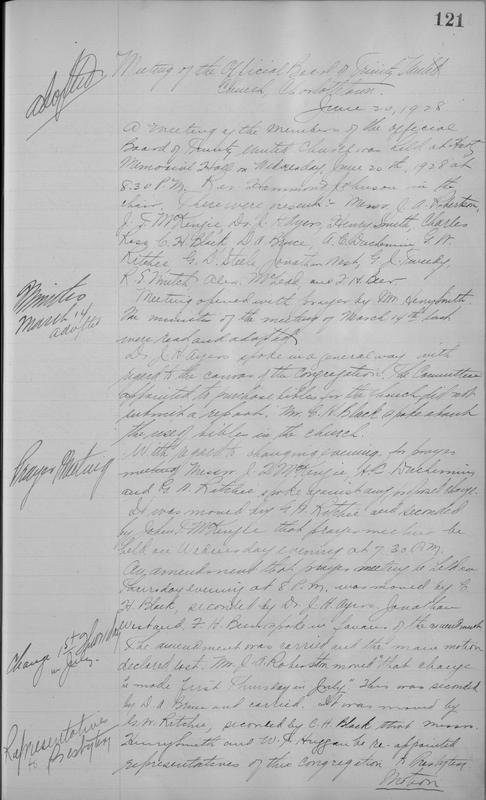 121
adopted
Meeting of the Official Board of Trinity United
Church, Charlottetown.
June 20, 1928
A meeting of the members of the official
Board of Trinity United Church was held at
Memorial Hall on Wednesday, June 20th, 1928 at
8.30 P.M. Rev. Hammond Johnson in the
chair. There were present: Messrs J. A. Robertson,
J. F. McKenzie, Dr. J. H. Ayers, Henry Smith, Charles
Ross, C. H. Black, D. A. Bruce, A. E. Duchemin, G. W.
Ritchie, G. D. Steele, Jonathan West, G. J. Tweedy,
R. S. Mutch, Alex. McLeod and F. H. Beer.
Minutes
March 14
adopted
Meeting opened with prayer by Mr. Henry Smith.
The minutes of the meeting of March 14th last
were read and adopted
Dr. J. H. Ayers spoke in a general way with
regard to the canvas of the congregation. The Committee
appointed to purchase bibles for the church did not
submit a report. Mr. C. H. Black spoke about
the used bibles in the church.
Prayer Meeting
With regard to changing evening for prayer
meeting Messrs J. F. McKenzie A. E. Duchemin
and G. W. Ritchie spoke against any proposed change.
It was moved by G. W. Ritchie and seconded
by John F. McKenzie that prayer meeting be
held on Wednesday evening at 7.30 P.M.
An amendment that prayer meeting be held on
Thursday evening at 8 P.M. was moved by C.
H. Black, seconded by Dr. J. H. Ayers. Jonathan
West and F. H. Beer spoke in favour of the amendment
Change 1st Thursday
in July.
The amendment was carried and the main motion
declared lost. Mr. J. A. Robertson moved that change
be made first Thursday in July." This was seconded
by D. A. Bruce and carried. It was moved by
Representatives
to
Presbytery
G. W. Ritchie, seconded by C. H. Black that Messrs.
Henry Smith and W. J. Huggan be re-appointed
representatives of this congregation to Presbytery
Motion